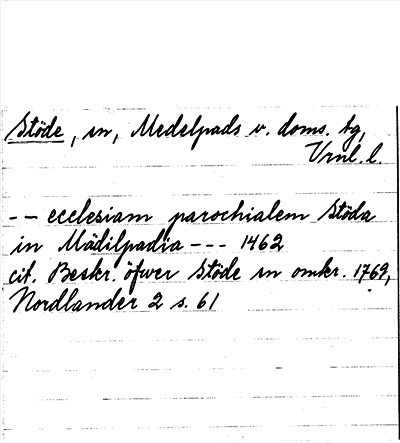 Stöde, sn, Medelpads v. doms. tg,
Vrnl. l.
-- ecclesiam parochialem Stöda
in Mädilpadia --- 1462
cit. Beskr. öfwer Stöde sn omkr. 1769,
Nordlander 2 s. 61